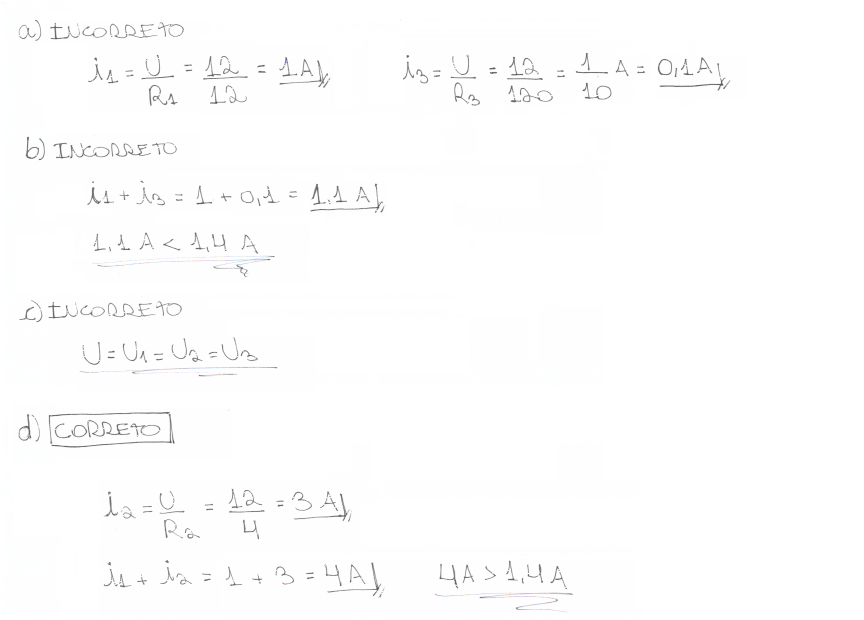 a) INCORRETO
i1 = U/R1 = 12/12 = 1A i3 = U/R3 = 12/120 = 1/10 A = 0,1A
b) INCORRETO
i1 + i3 = 1 + 0,1 = 1,1 A
1,1 A < 1,4 A
c) INCORRETO
U = U1 = U2 = U3
d) CORRETO
i2 = U/R2 = 12/4 = 3 A
i1 + i2 = 1 + 3 = 4A 4A > 1,4A